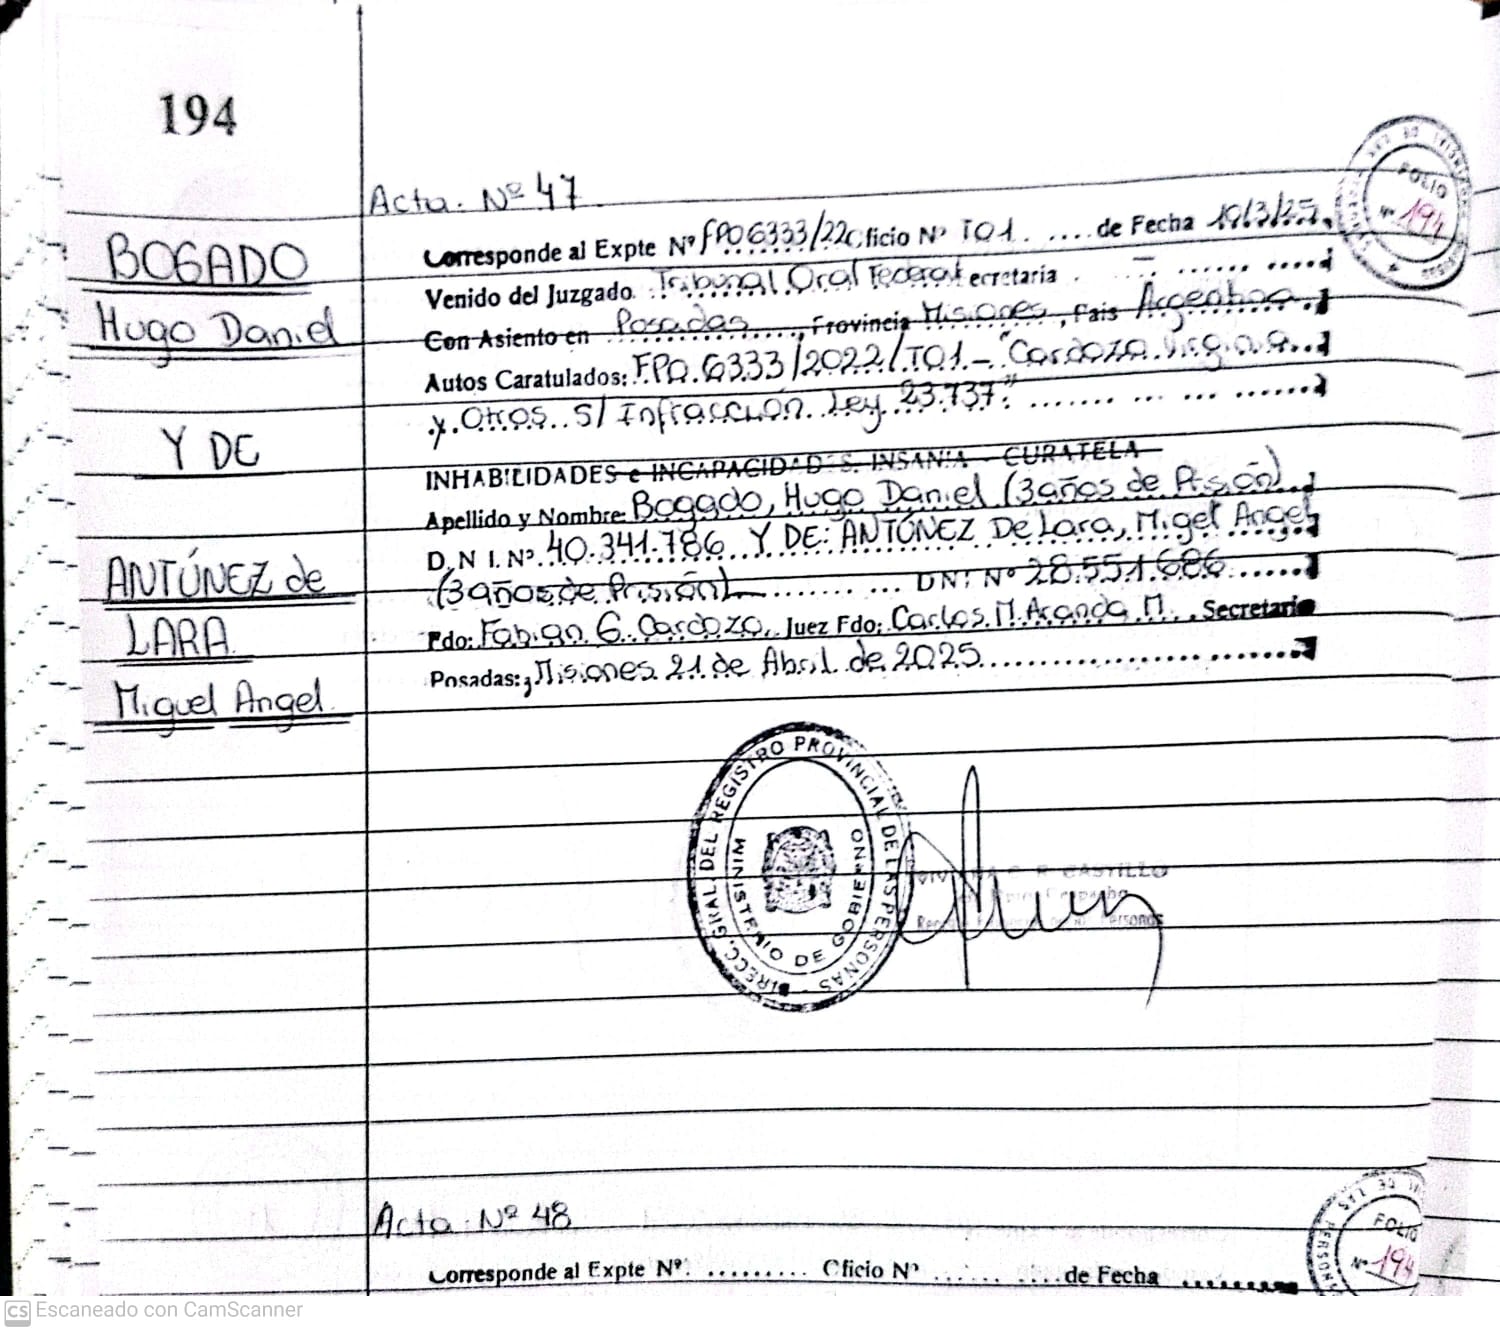 194
FOLIO
Nº 194
Acta. Nº 47
BOGADO
Hugo Daniel
Y DE
ANTÚNEZ de
LARA
Miguel Angel.
Corresponde al Expte Nº FPO 6333/22 Oficio Nº TO1. .... de Fecha 19/3/25.
Venido del Juzgado. Tribunal Oral Federal ecretaria . – ......
Con Asiento en Posadas, Provincia Misiones, Pais Argentina.
Autos Caratulados: FPO. 6333/2022/TO1 – "Cardoza Virginia
y. Otros. S/ Infracción. Ley 23.737"
INHABILIDADES e INCAPACIDADES. INSANIA - CURATELA
Apellido y Nombre: Bogado, Hugo Daniel (3 años de Prisión)
D. N I. Nº 40.341.786 Y DE: ANTÚNEZ De Lara, Migel Angel
(3 años de Prisión) DNI Nº 28.551.686
Fdo: Fabian G. Cardozo, Juez Fdo: Carlos. M. Aranda M. , Secretario
Posadas; Misiones 21 de Abril de 2025
DIRECC. GRAL. DEL REGISTRO PROVINCIAL DE LAS PERSONAS
MINISTERIO DE GOBIERNO
CASTILLO
Personas
Acta. Nº 48
FOLIO
Nº 194
Corresponde al Expte Nº: ......... Oficio Nº ...... .... de Fecha ........
CS Escaneado con CamScanner